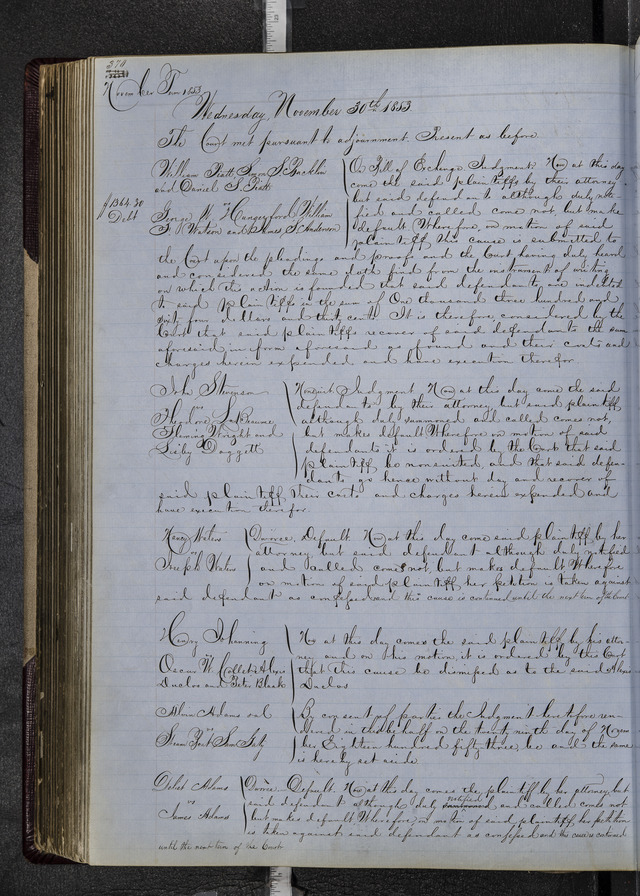 370
November Term 1853
Wednesday, November 30th 1853
The Court met pursuant to adjournment. Present as before
William Piatt
and Daniel S. Piatt
vs
$1364.30
Debt
George W. Hungerford, William
F. Watson and James S. Anderson
On Bill of Exchange Judgment. Now at this day
come the said plaintiffs by their attorney
but said defendants although duly noti-
fied and called come not, but make
default. Wherefore, on motion of said
plaintiffs this cause is submitted to
the Court upon the pleadings and proof and the Court having duly heard
and considered the same doth find from the instrument of writing
on which this action is founded that said defendants are indebted
to said plaintiffs in the sum of One thousand three hundred and
sixty four dollars and thirty cents. It is therefore considered by the
Court that said plaintiffs recover of said defendants the sum
aforesaid in form aforesaid as found and their costs and
charges herein expended and have execution therefor.
John Stevenson
vs
Theodore LaBeaume
Fleming Wright and
Daggett
Nonsuit Judgment. Now at this day come the said
defendants by their attorney but said plaintiff
although duly summoned and called comes not,
but makes default. Wherefore on motion of said
defendants it is ordered by the Court that said
plaintiff be nonsuited, and that said defen-
dants go hence without day and recover of
said plaintiff their costs and charges herein expended and
have execution therefor.
Waters
vs
Joseph Waters
Divorce. Default. Now at this day come said plaintiff by her
attorney but said defendant although duly notified
and called comes not but makes default. Wherefore
on motion of said plaintiff her petition is taken against
said defendant as confessed and this cause is continued until the next term of the Court
Henry
vs
Oscar W. Collet Alvin
Duclos and Peter Blake
Now at this day comes the said plaintiff by his attor-
ney and on his motion, it is ordered by the Court
that this cause be dismissed as to the said Alvin
Duclos
Alvin Adams et al
vs
Steam Boat Sam Gaty
By consent of parties the Judgment heretofore ren-
dered in this behalf on the twenty ninth day of Novem
ber Eighteen hundred fifty three be and the same
is hereby set aside.
Adams
vs
James Adams
Divorce. Default. Now at this day comes the plaintiff by her attorney, but
said defendant although duly notified and called comes not
but makes default. Wherefore, on motion of said plaintiff, her petition
is taken against said defendant as confessed and this cause is continued
until the next term of the Court